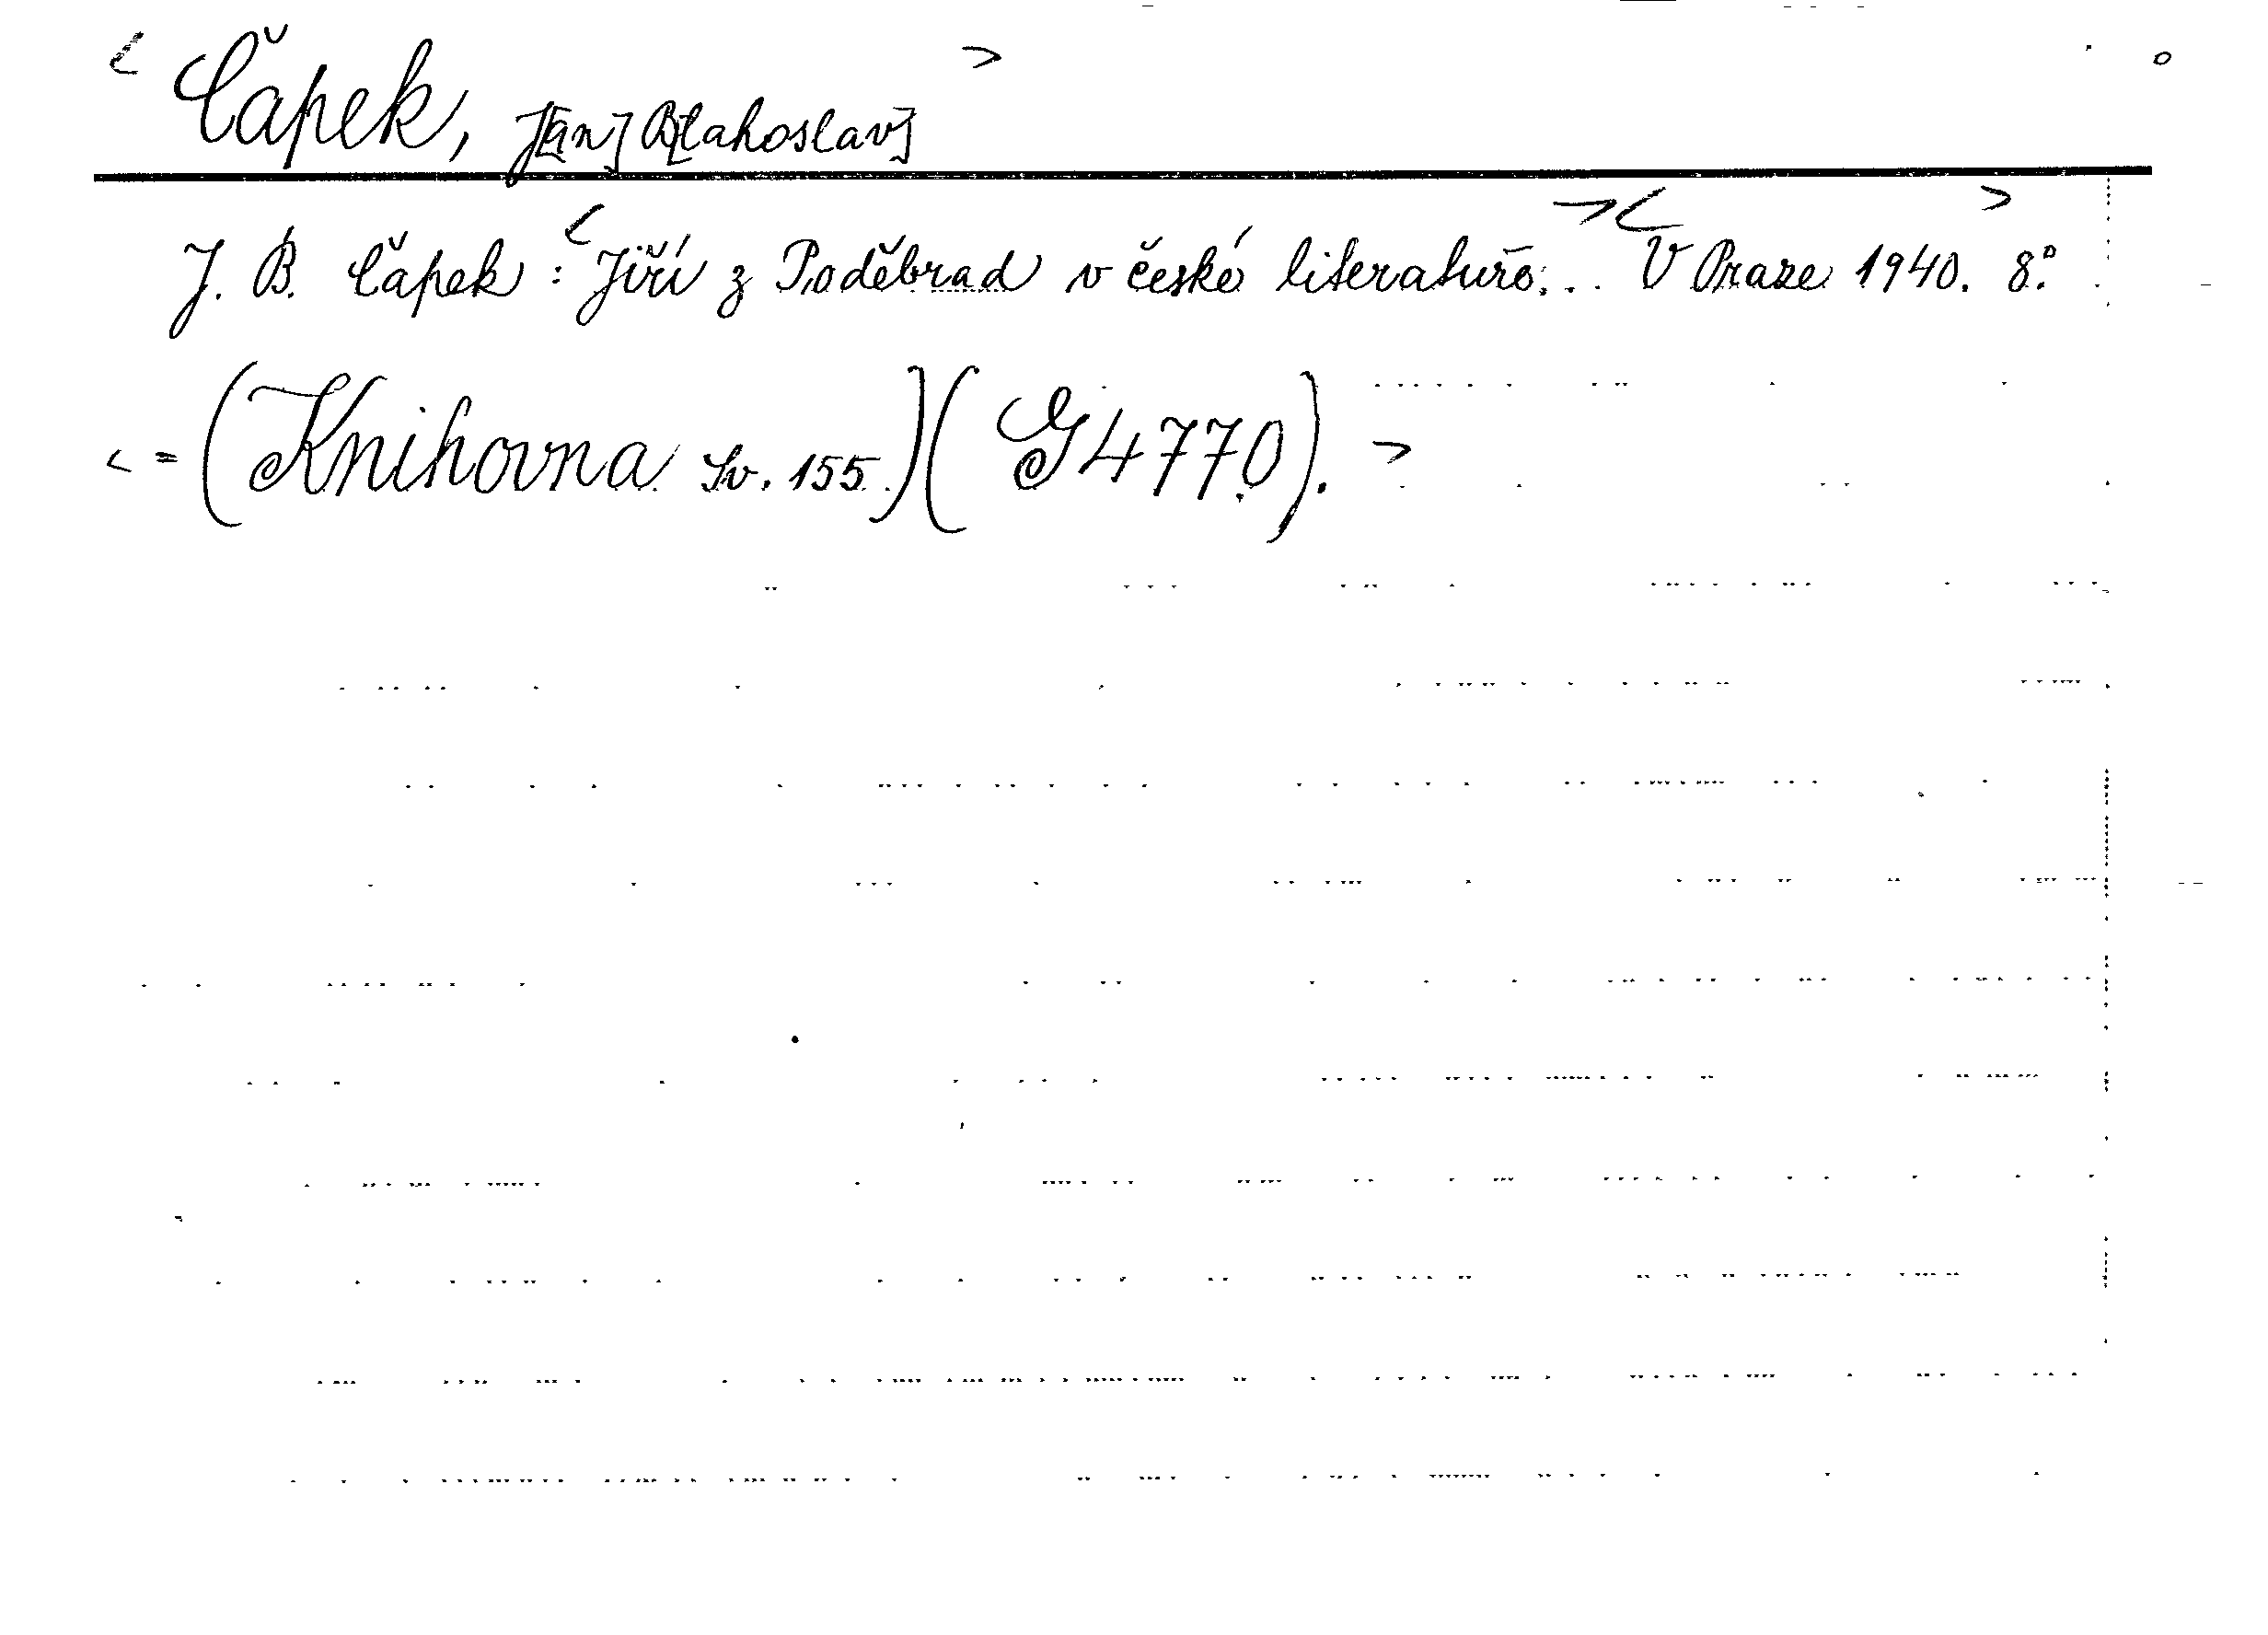 < Čapek, J[an] B[lahoslav] >
J. B. Čapek: <Jiří z Poděbrad v české literatuře... >< V Praze 1940. > 8°.
< = (Knihovna Sv. 155.)(G 4770). >